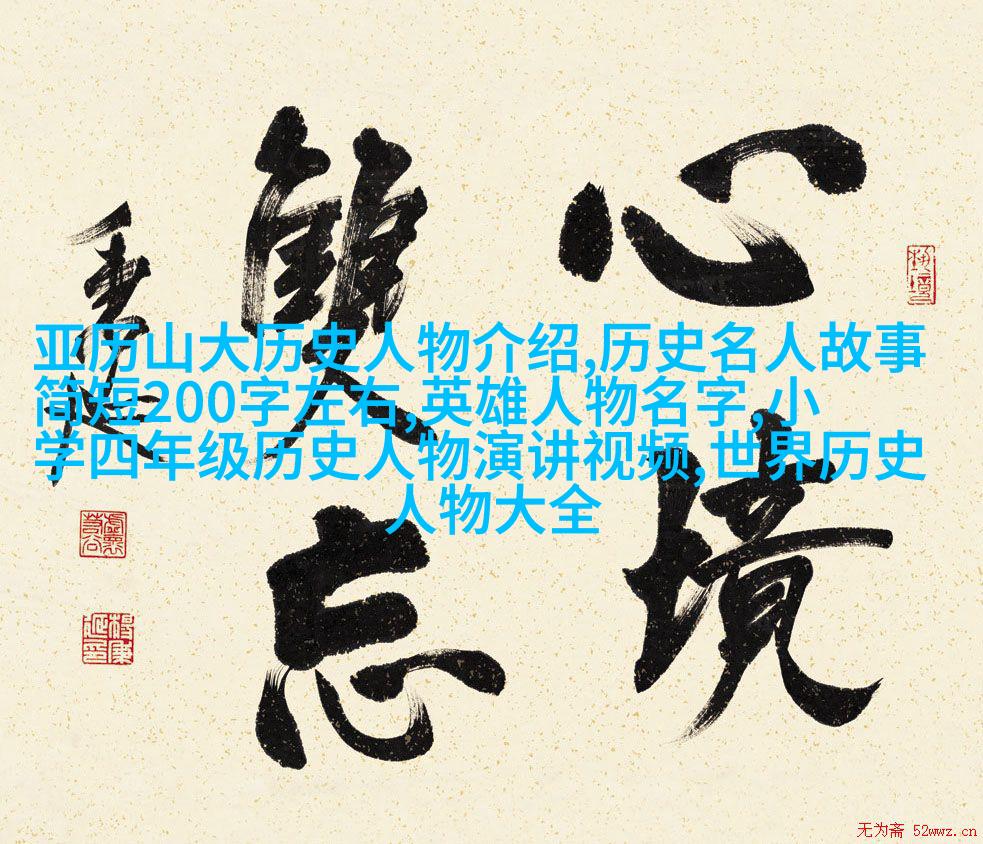 心境
雙忘
亚历山大历史人物介绍,历史名人故事
简短200字左右,英雄人物名字,小
学四年级历史人物演讲视频,世界历史
人物大全
无为斋 52wwz.cn